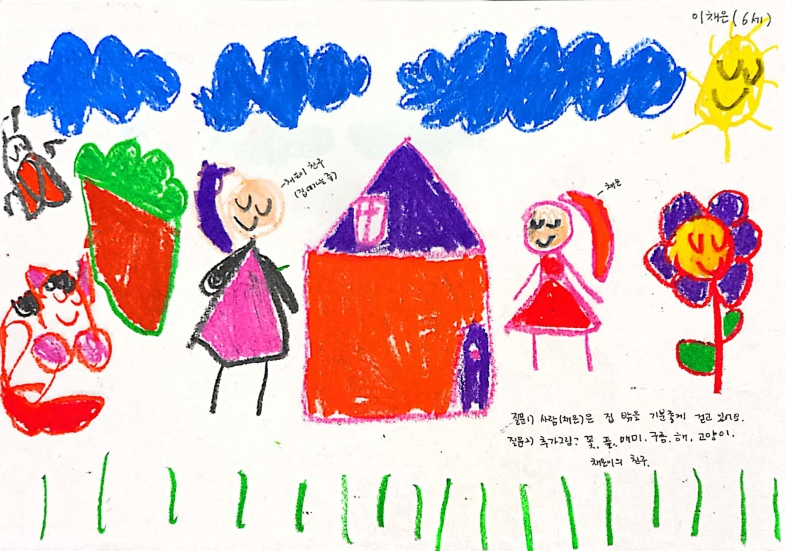 이채은(6세)
채은이 친구
(집에가는 중)
채은
질문1) 사람(채은)은 집 밖을 기분좋게 걷고 있어요.
질문2) 추가그림: 꽃, 풀, 매미, 구름, 해, 고양이,
채은이의 친구.